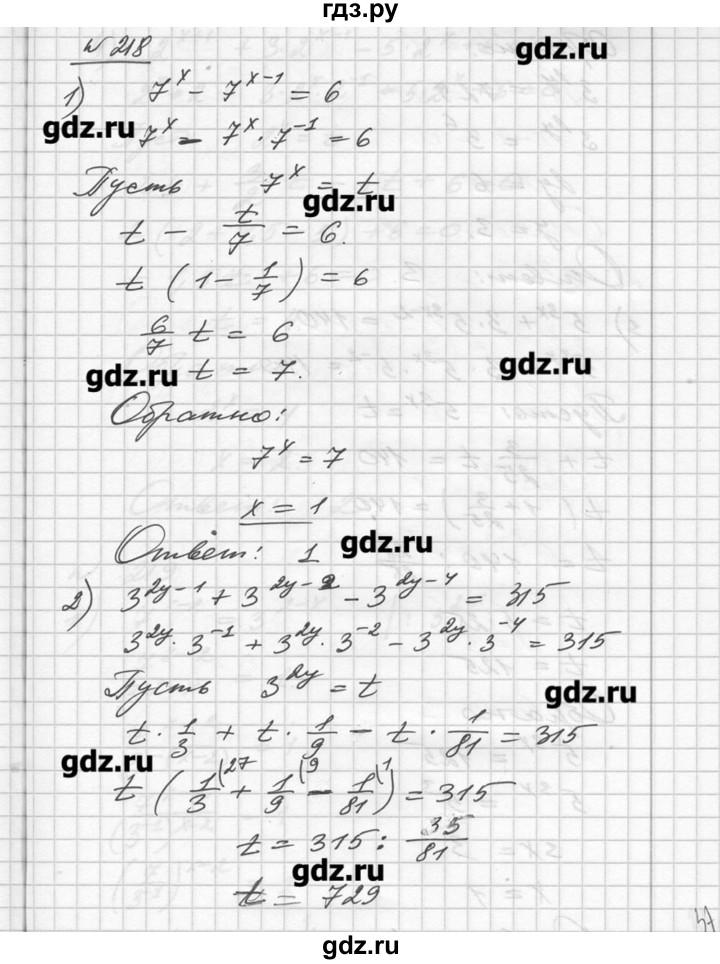 гдз.ру
gdz.ru
№ 218
1) 7^x − 7^{x−1} = 6
gdz.ru
7^x − 7^x · 7^{−1} = 6
Пусть 7^x = t
gdz.ru
t − t/7 = 6.
t (1 − 1/7) = 6
6/7 t = 6
gdz.ru
gdz.ru
t = 7.
Обратно:
7^x = 7
x = 1
Ответ: 1
gdz.ru
2) 3^{2y−1} + 3^{2y−2} − 3^{2y−4} = 315
3^{2y} · 3^{−1} + 3^{2y} · 3^{−2} − 3^{2y} · 3^{−4} = 315
Пусть 3^{2y} = t
gdz.ru
t · 1/3 + t · 1/9 − t · 1/81 = 315
gdz.ru
t (1/3 |27 + 1/9 |9 − 1/81 |1) = 315
t = 315 : 35/81
gdz.ru
t = 729
gdz.ru